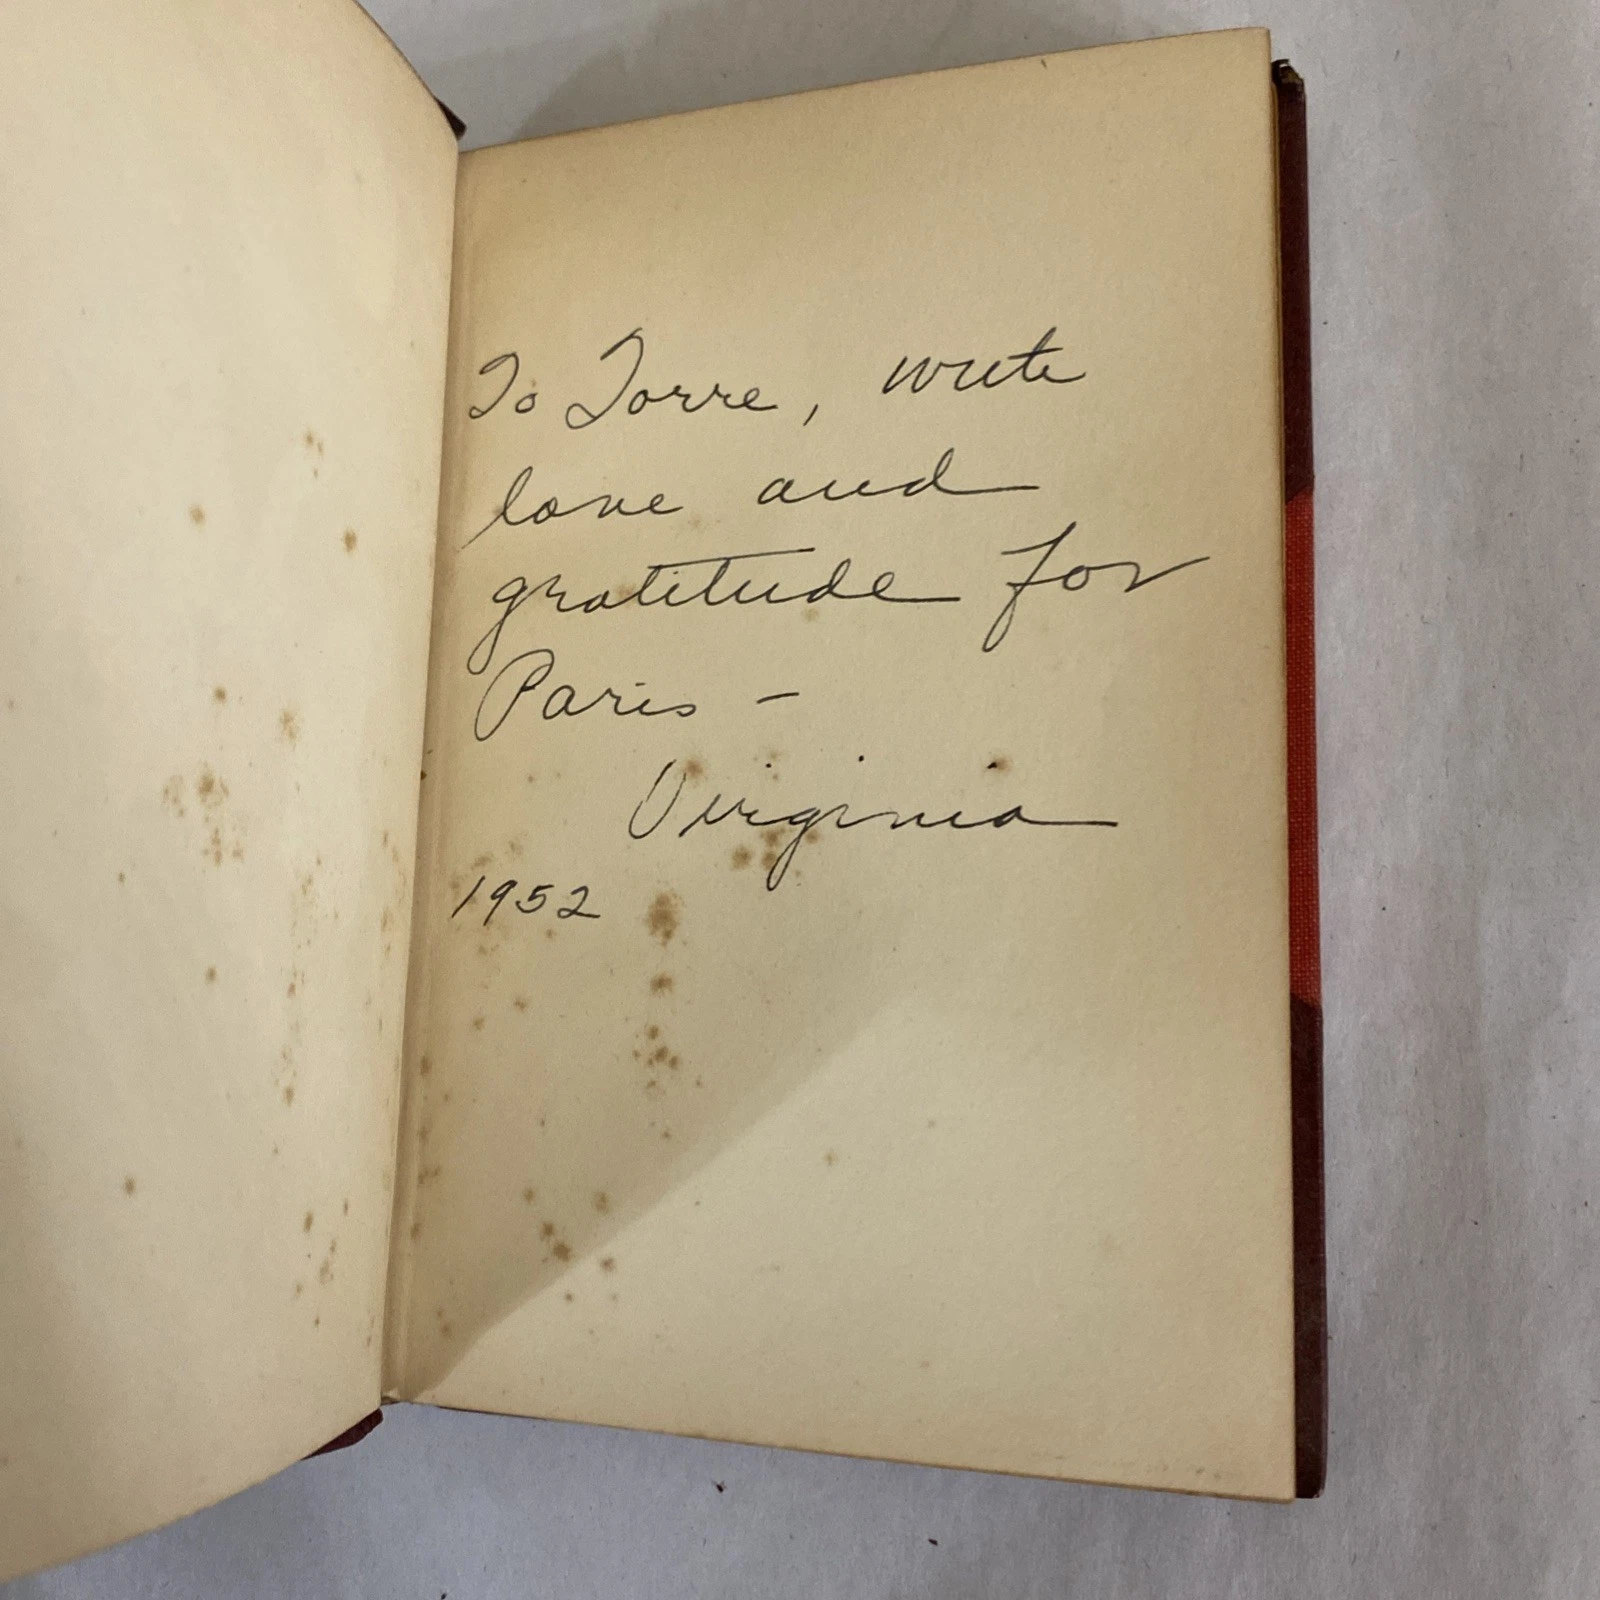 To Torre, write
love and
gratitude for
Paris –
Virginia
1952